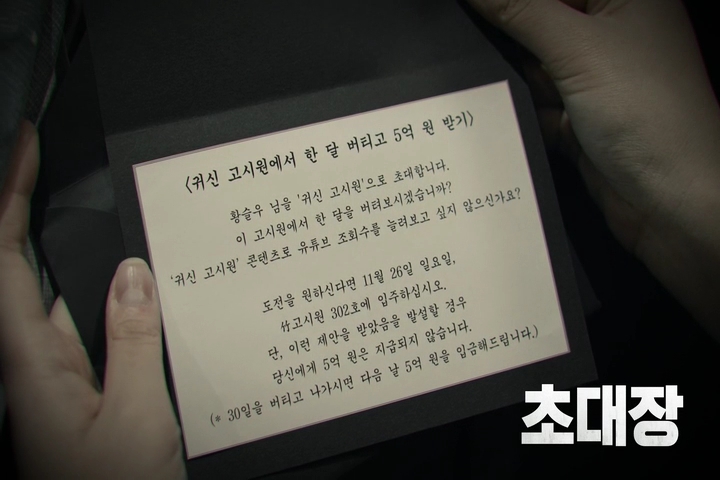 〈귀신 고시원에서 한 달 버티고 5억 원 받기〉
황슬우 님을 '귀신 고시원'으로 초대합니다.
이 고시원에서 한 달을 버텨보시겠습니까?
'귀신 고시원' 콘텐츠로 유튜브 조회수를 늘려보고 싶지 않으신가요?
도전을 원하신다면 11월 26일 일요일,
竹고시원 302호에 입주하십시오.
단, 이런 제안을 받았음을 발설할 경우
당신에게 5억 원은 지급되지 않습니다.
(* 30일을 버티고 나가시면 다음 날 5억 원을 입금해드립니다.)
초대장